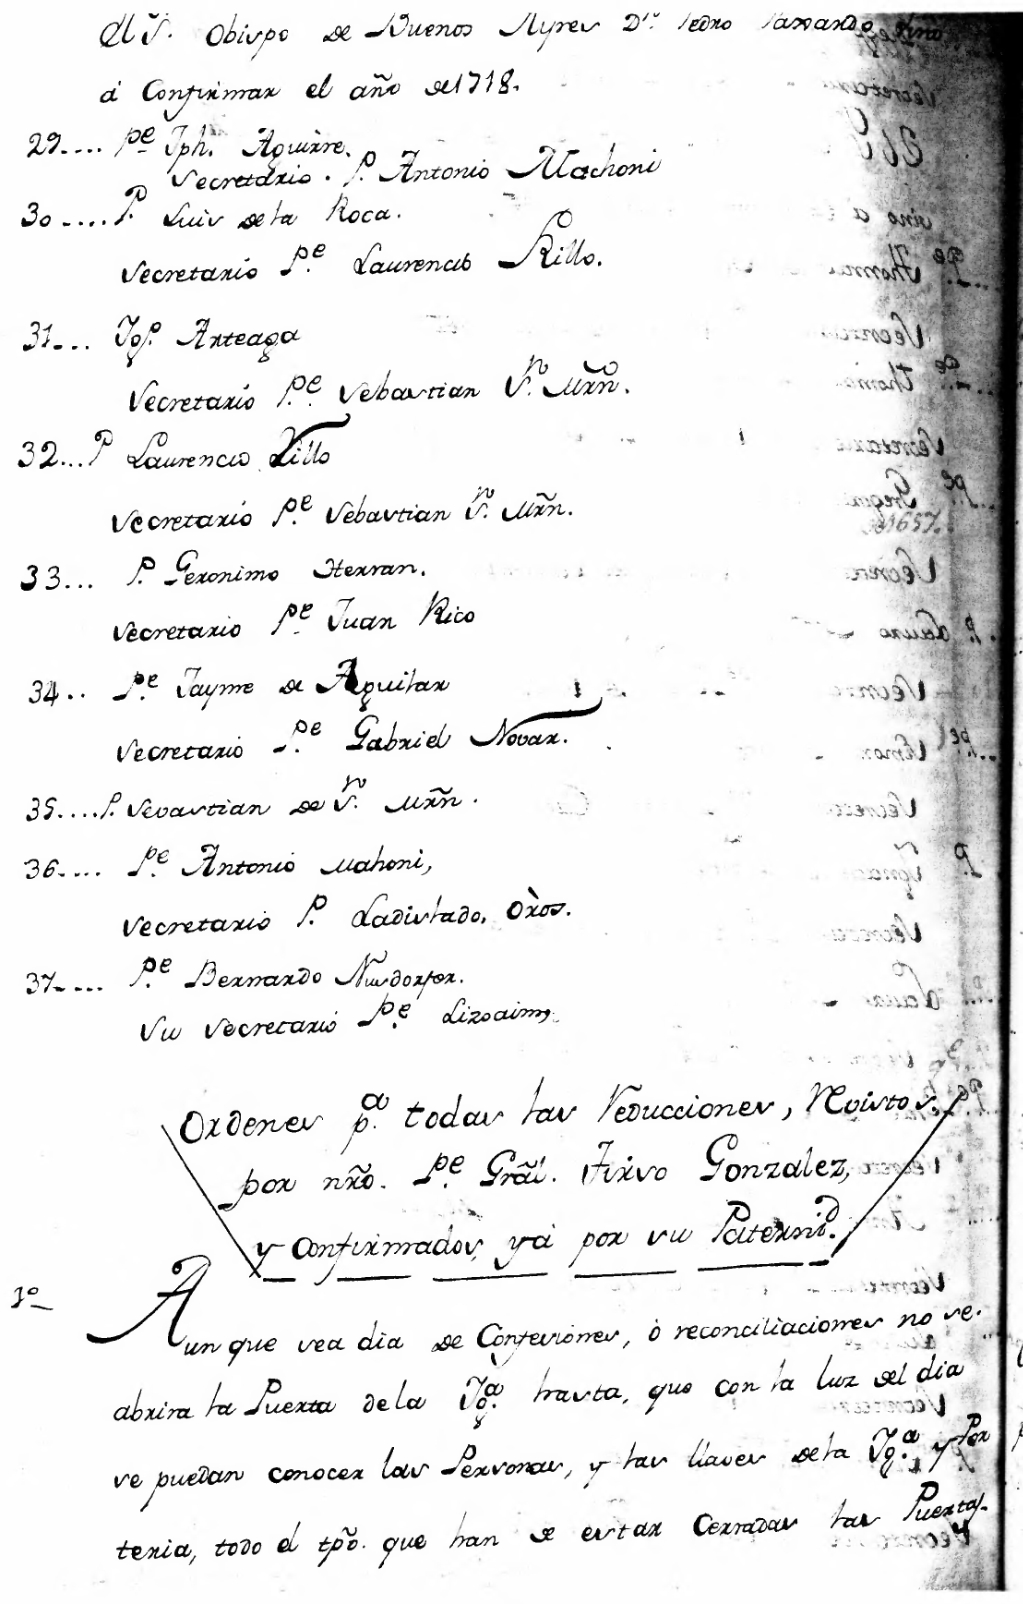 El S.r Obispo de Buenos Ayres D.n Pedro Faxardo vino
á Confirmar el año de 1718.
29.... P.e Jph. Aguirre.
Secretario. P. Antonio Machoni
30.... P. Luis de la Roca.
Secretario P.e Laurencio Rillo.
31... Jos.ph Arteaga
Secretario P.e Sebastian S.n Mrñ.
32... P Laurencio Rillo
Secretario P.e Sebastian S.n Mrñ.
33... P. Geronimo Herran.
Secretario P.e Juan Rico
34.. P.e Jayme de Aguilar
Secretario P.e Gabriel Novar.
35.... P. Sebastian de S.n Mrñ.
36.... P.e Antonio Mahoni,
Secretario P. Ladislado, Oròs.
37.... P.e Bernardo Nusdorfer.
Su Secretario P.e Lizoaim,
Ordenes p.a todas las Reducciones, Revistos
por nrõ. P.e Grãl. Tirso Gonzalez,
y Confirmados, yá por su Paternid.
1º
Aunque sea dia de Confesiones, ò reconciliaciones no se
abrira la Puerta de la Ig.a hasta, que con la luz del dia
se puedan conocer las Personas, y las llaves de la Ig.a y Por
teria, todo el tpõ. que han de estar Cerradas las Puertas.